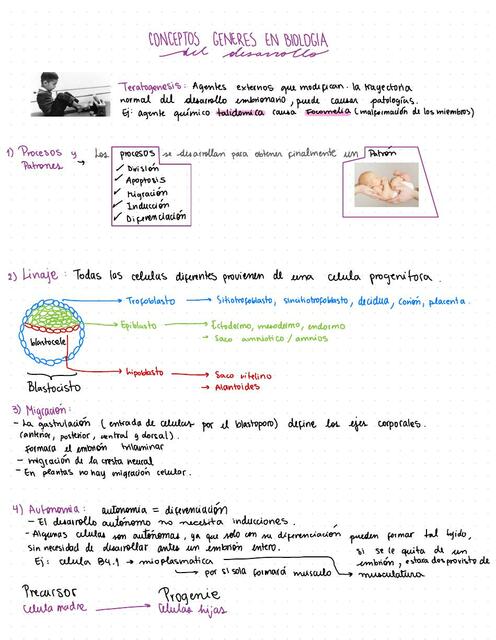 CONCEPTOS GENERES EN BIOLOGIA
del desarrollo
Teratogenesis: Agentes externos que modifican la trayectoria
normal del desarrollo embrionario, puede causar patologías.
Ej: agente químico talidomica causa Focomelia (malformación de los miembros)
1) Procesos y Patrones → Los procesos se desarrollan para obtener finalmente un Patrón
✓ División
✓ Apoptosis
✓ Migración
✓ Inducción
✓ Diferenciación
2) Linaje: Todas las celulas diferentes provienen de una celula progenitora.
Trofoblasto → Sitiotrofoblasto, sincitiotrofoblasto, decidua, corion, placenta.
Epiblasto → Ectodermo, mesodermo, endormo
→ Saco amniotico / amnios
blastocele
Hipoblasto → Saco vitelino
→ Alantoides
Blastocisto
3) Migración:
- La gastrulación (entrada de celulas por el blastoporo) define los ejes corporales.
(anterior, posterior, ventral y dorsal).
Formara el embrión trilaminar
- migración de la cresta neural
- En plantas no hay migración celular.
4) Autonomia: autonomia = diferenciación
- El desarrollo autónomo no necesita inducciones.
- Algunas celulas son autónomas, ya que solo con su diferenciación pueden formar tal tejido,
sin necesidad de desarrollar antes un embrión entero.
Ej: celula B4.1 → mioplasmatica
→ por si sola formará musculo
si se le quita de un
embrión, estara desprovisto de
musculatura
Precursor
Celula madre → Progenie
Celulas hijas